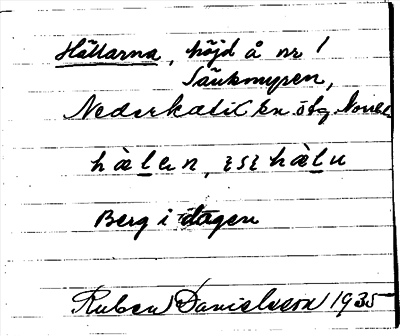 Hällarna, höjd å nr 1
Sänkmyren,
Nederkalix sn ösg Norrb.
hàlen, hàlu
Berg i dagen
Ruben Danielsson 1935